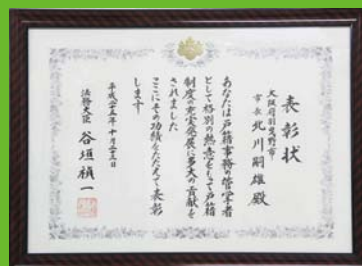 表彰状
大阪府羽曳野市
市長 北川嗣雄 殿
あなたは戸籍事務の管掌者
として格別の熱意をもって戸籍
制度の充実発展に多大の貢献を
されました
ここにその功績をたたえて表彰
します
平成二十五年十月二十五日
法務大臣 谷垣禎一